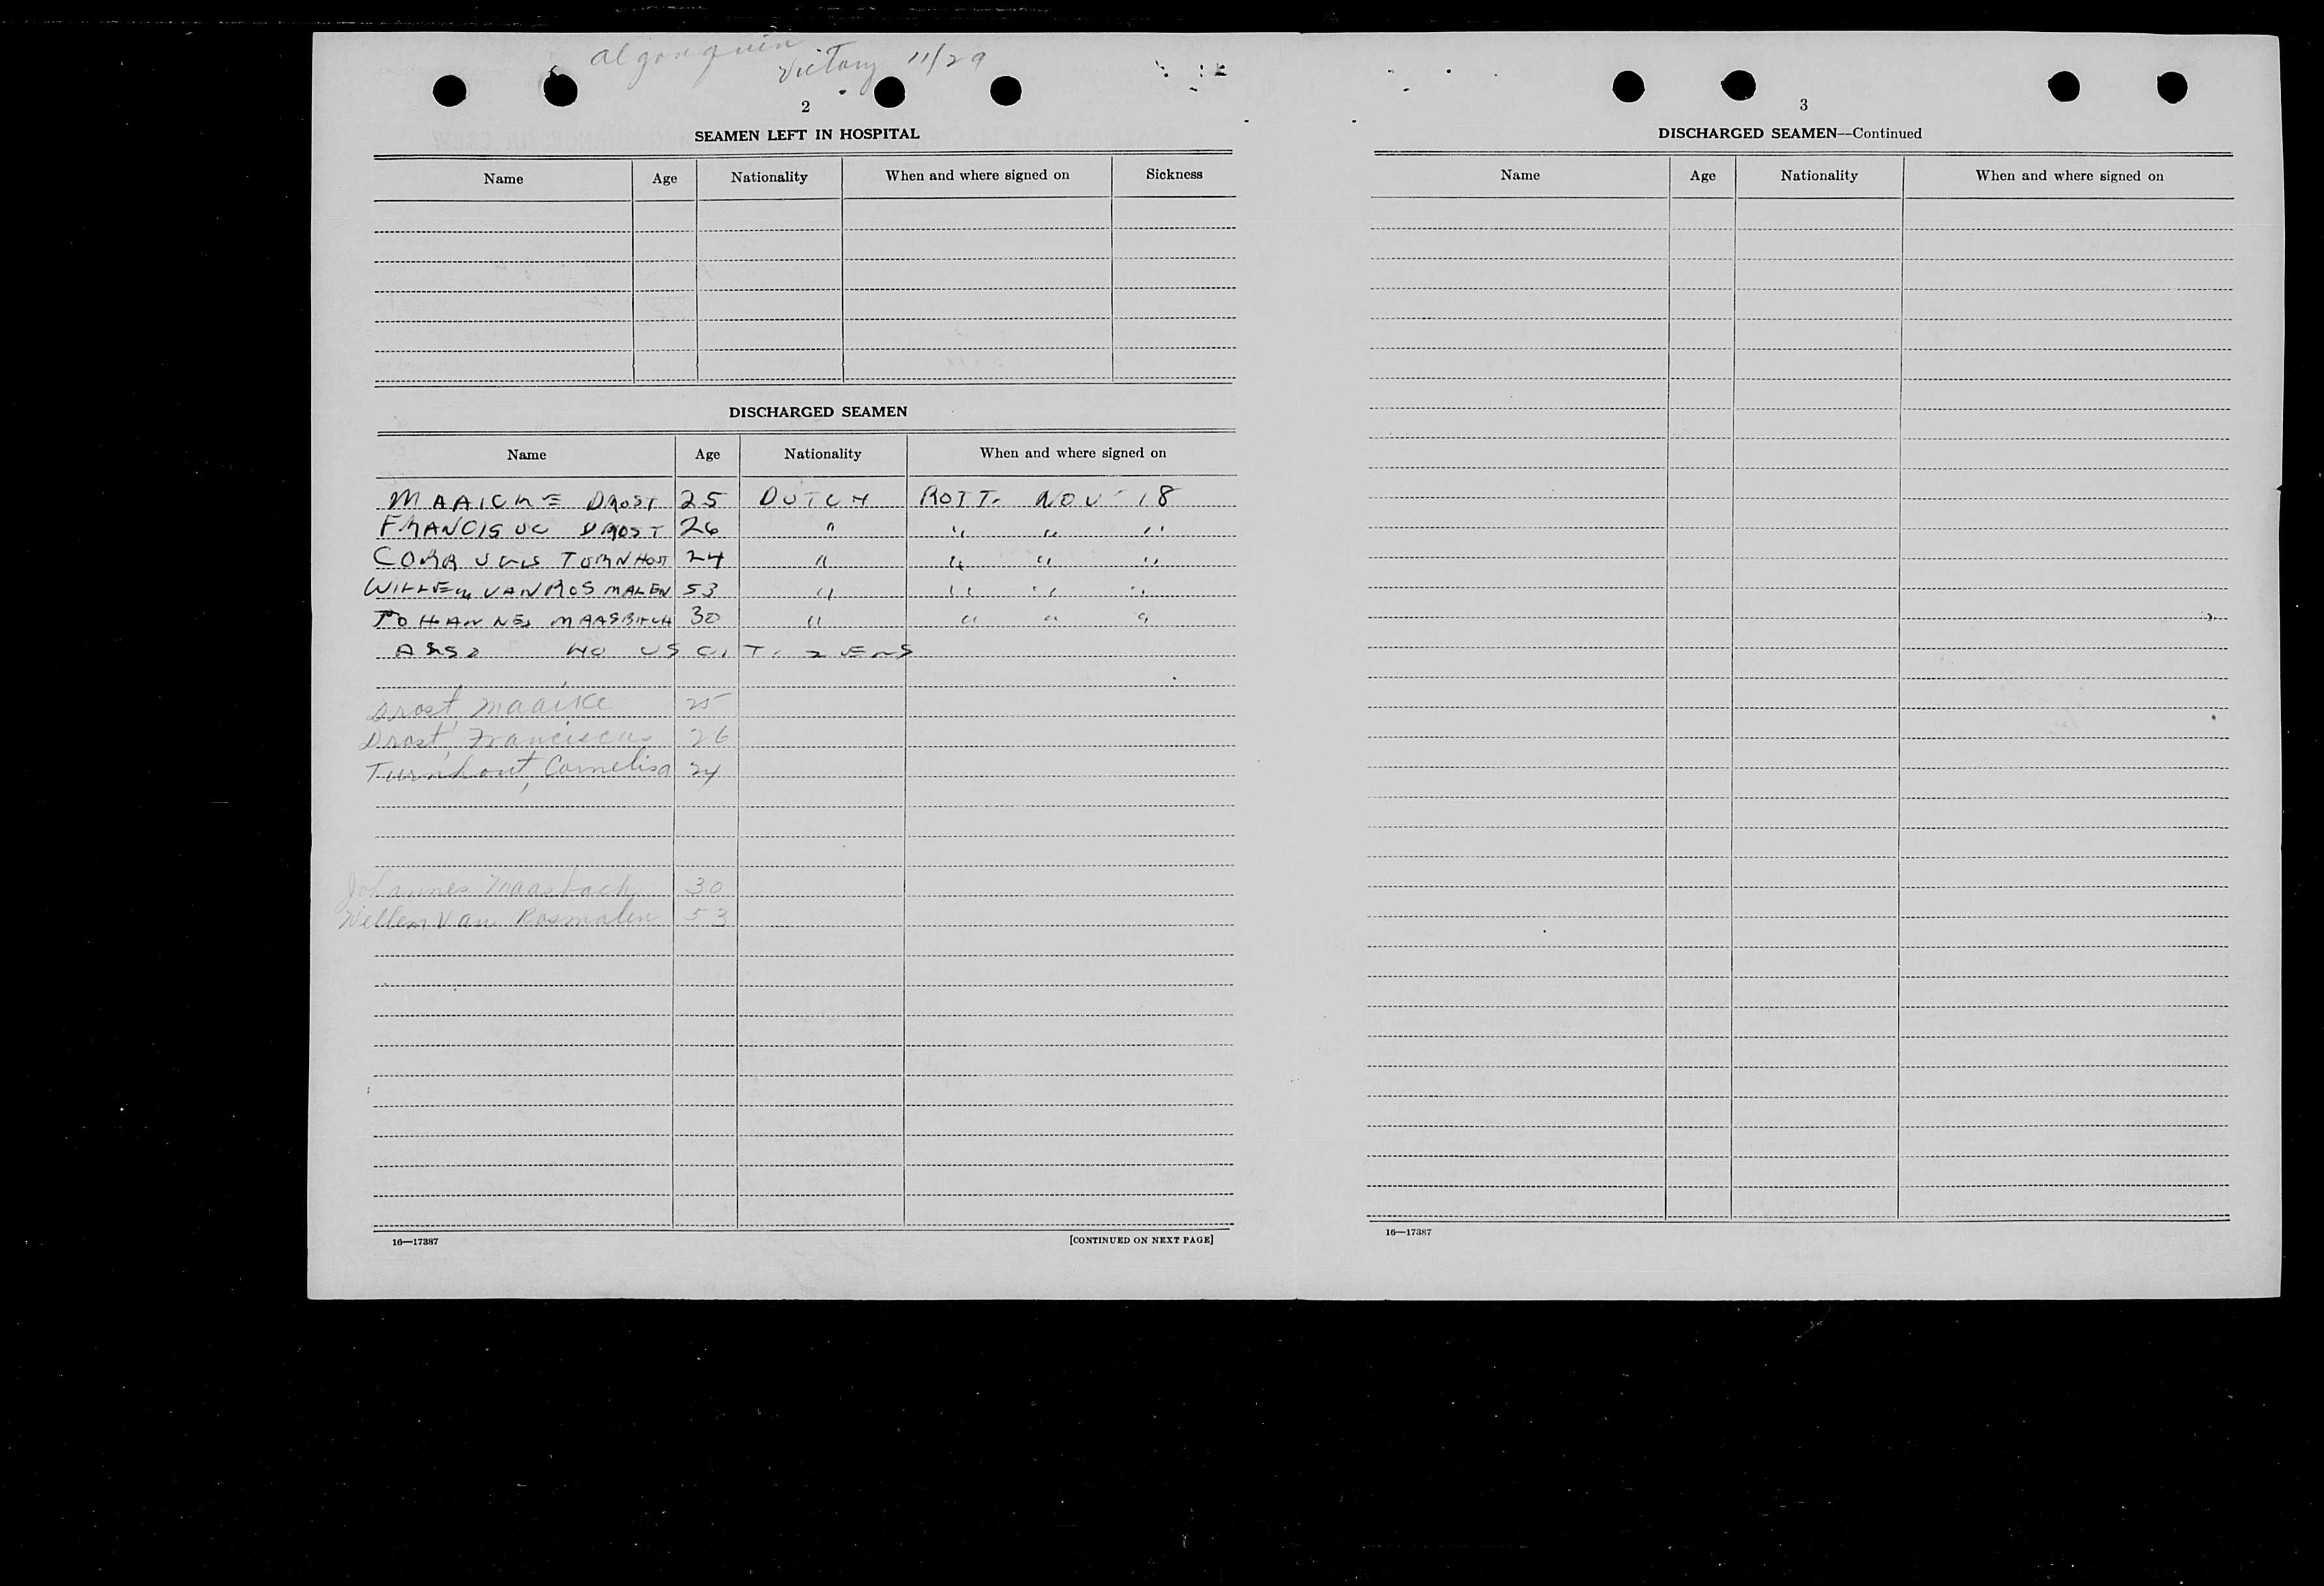 Algonquin
Victory 11/29
2
SEAMEN LEFT IN HOSPITAL
Name Age Nationality When and where signed on Sickness
DISCHARGED SEAMEN
Name Age Nationality When and where signed on
MAAICKE DROST 25 DUTCH ROTT. NOV 18
FRANCISUC DROST 26 " " " "
TURNHOST 24 " " " "
WILLEM VAN ROSMALEN 53 " " " "
JOHANNES 30 " " " "
NO US CITIZENS
Drost, Maaike 25
Drost, Franciscus 26
Turnhout, Cornelisa 24
Johannes Maasbach 30
Willem Van Rosmalen 53
16—17387 [CONTINUED ON NEXT PAGE]
3
DISCHARGED SEAMEN—Continued
Name Age Nationality When and where signed on
16—17387